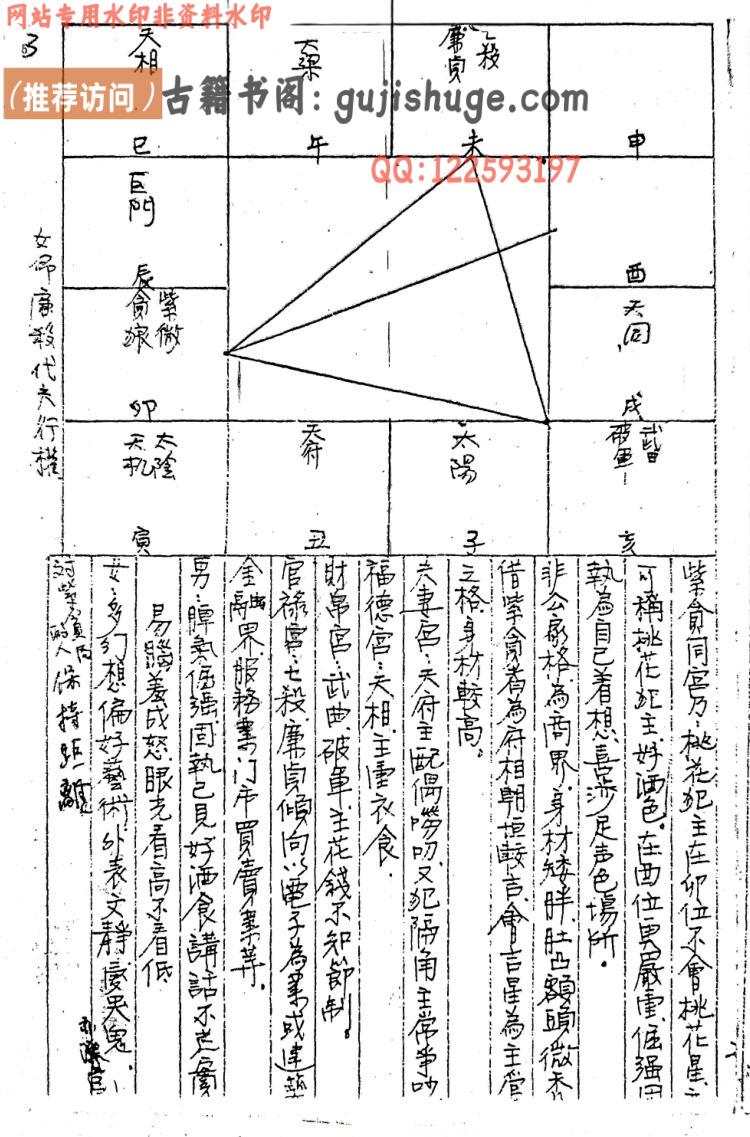 网站专用水印非资料水印
3
(推荐访问)
古籍书阁: gujishuge.com
QQ:122593197
天相
巳
天梁
午
七殺
廉貞
未
申
巨門
辰
酉
紫微
貪狼
卯
天同
戌
太陰
天机
寅
天府
丑
太陽
子
武曲
破軍
亥
女命廉殺代夫行權
紫貪同宮乃:桃花犯主在卯位不會桃花星
可稱桃花犯主,好酒色。在酉位更嚴重,倔强固
執為自己着想,喜涉足声色塲所。
非公家格,為商界,身材矮胖,肚凸額頭微禿
借紫貪者為府相朝垣較吉,會吉星為主管
之格,身材較高。
夫妻宮:天府主配偶嘮叨,又犯隔角主常爭吵
福德宮:天相,主重衣食.
財帛宮:武曲破軍主花錢不知節制。
官祿宮:七殺.廉貞傾向以電子為業或建築
金融界.服務業.门市買賣業等.
男:脾氣倔强.固執己見好酒食講話不老實
易腦羞成怒.眼光看高不看低
女:多幻想偏好藝術.外表文靜.
對紫貪
的人保持距離